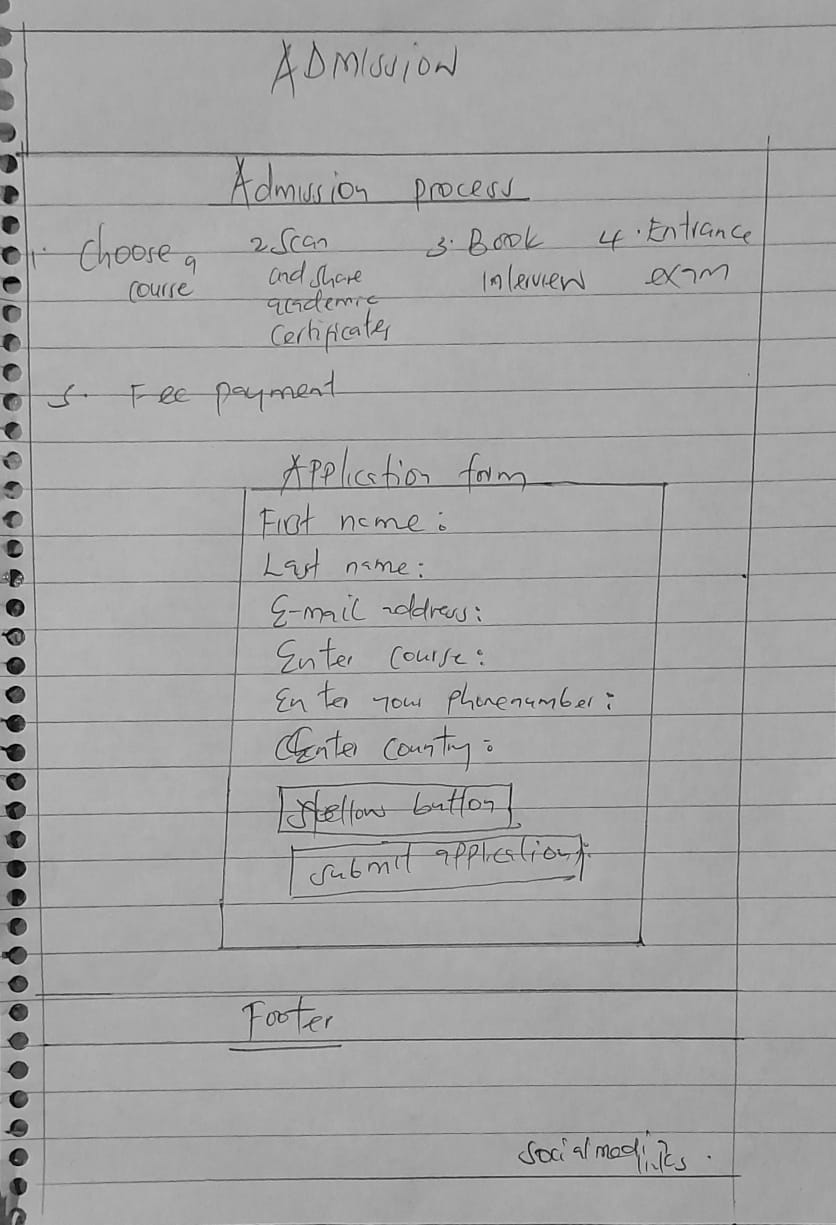 ADMISSION
Admission process
1. Choose a course
2. Scan and share academic certificates
3. Book interview
4. Entrance exam
5. Fee payment
Application form
First name:
Last name:
E-mail address:
Enter course:
Enter your phonenumber:
Enter county:
button
submit application
Footer
social